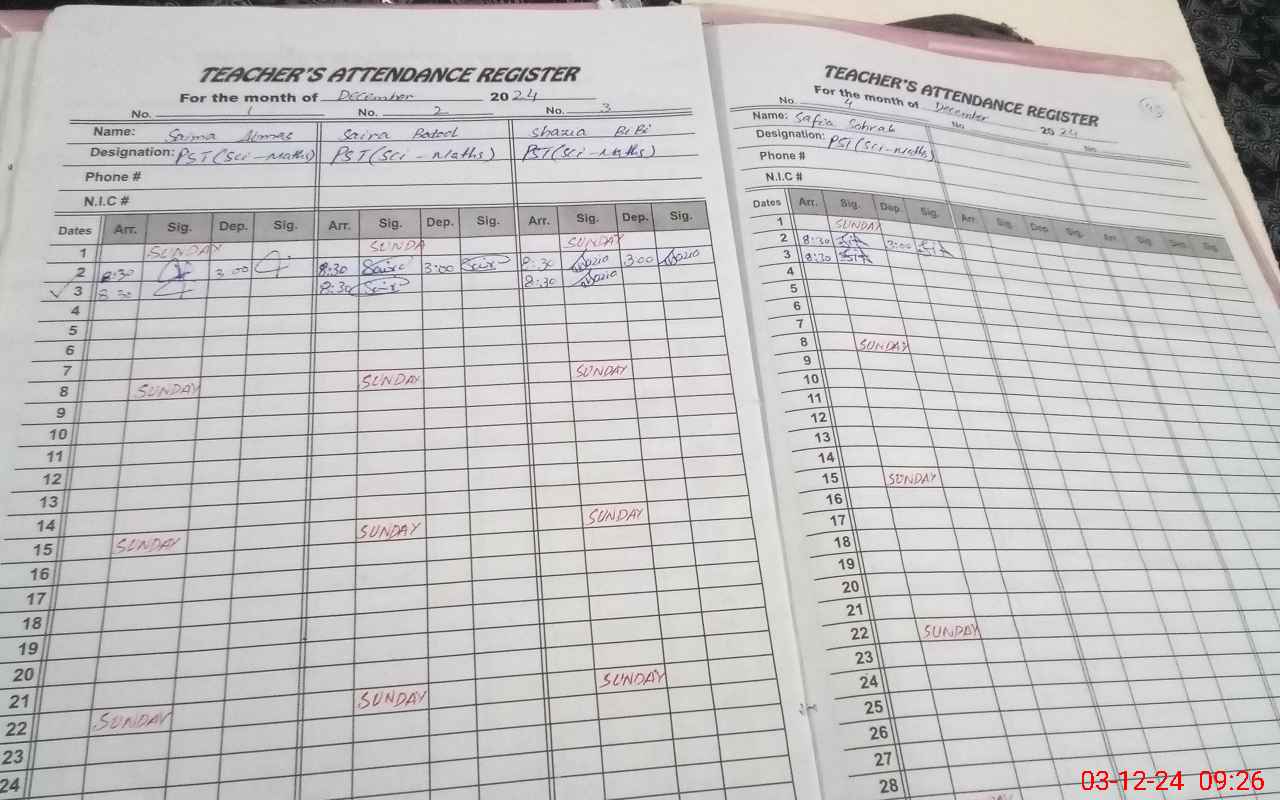 TEACHER'S ATTENDANCE REGISTER
For the month of December 2024
No. 1 No. 2 No. 3
Name: Saima Almas Saira Batool Shazia BiBi
Designation: PST (Sci-Maths) PST (Sci-Maths) PST (Sci-Maths)
Phone #
N.I.C #
Dates Arr. Sig. Dep. Sig. Arr. Sig. Dep. Sig. Arr. Sig. Dep. Sig.
1 SUNDAY SUNDA SUNDAY
2 8:30 3:00 8:30 Saira 3:00 Saira 8:30 Shazia 3:00 Shazia
3 8:30 8:30 Saira 8:30 Shazia
4
5
6
7
8 SUNDAY SUNDAY SUNDAY
9
10
11
12
13
14
15 SUNDAY SUNDAY SUNDAY
16
17
18
19
20
21
22 SUNDAY SUNDAY SUNDAY
23
24
TEACHER'S ATTENDANCE REGISTER
For the month of December 2024
No. 4 No. No.
Name: Safia Sohrab
Designation: PST (Sci-Maths)
Phone #
N.I.C #
Dates Arr. Sig. Dep. Sig. Arr. Sig. Dep. Sig. Arr Sig. Dep Sig.
1 SUNDAY
2 8:30 3:00
3 8:30
4
5
6
7
8 SUNDAY
9
10
11
12
13
14
15 SUNDAY
16
17
18
19
20
21
22 SUNDAY
23
24
25
26
27
28
03-12-24 09:26